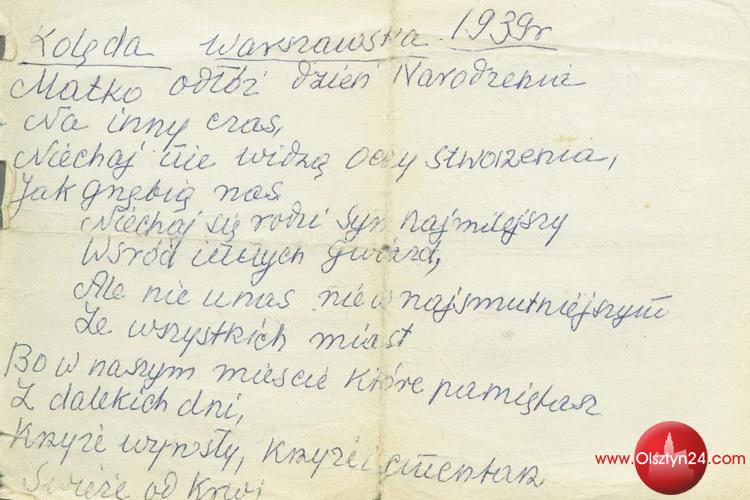 Kolęda Warszawska 1939r
Matko odłóż dzień Narodzenia
Na inny czas,
Niechaj nie widzą oczy stworzenia,
Jak gnębią nas.
Niechaj się rodzi Syn najmilejszy
Wśród innych gwiazd,
Ale nie u nas nie w najsmutniejszym
Ze wszystkich miast
Bo w naszym mieście które pamiętasz
Z dalekich dni,
Krzyże wyrosły, krzyże i cmentarz
Świeże od krwi
www.Olsztyn24.com